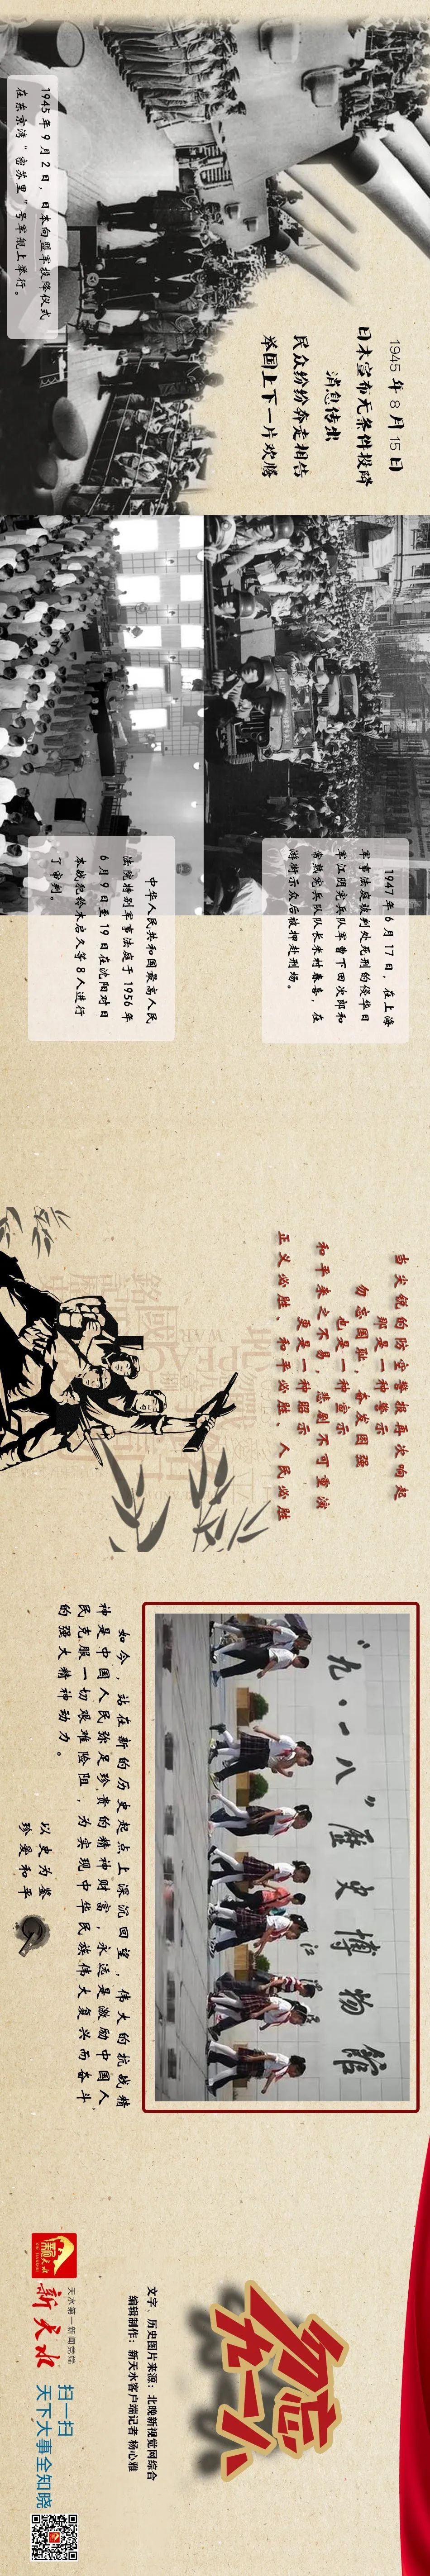 1945 年 8 月 15 日
日本宣布无条件投降
消息传出
民众纷纷奔走相告
举国上下一片欢腾
1945 年 9 月 2 日，日本向盟军投降仪式
在东京湾“密苏里”号军舰上举行。
1947 年 6 月 17 日，在上海
军事法庭被判处死刑的侵华日
军江阴宪兵队军曹下田次郎和
常熟宪兵队队长米村春喜，在
游街示众后被押赴刑场。
中华人民共和国最高人民
法院特别军事法庭于 1956 年
6 月 9 日至 19 日在沈阳对日
本战犯铃木启久等 8 人进行
了审判。
当尖锐的防空警报再次响起
那是一种警示
勿忘国耻，奋发图强
也是一种宣示
和平来之不易，悲剧不可重演
更是一种昭示
正义必胜、和平必胜、人民必胜
WAR
PEACE
“九·一八”歷史博物館
如今，站在新的历史起点上深沉回望，伟大的抗战精
神是中国人民弥足珍贵的精神财富，永远是激励中国人
民克服一切艰难险阻，为实现中华民族伟大复兴而奋斗
的强大精神动力。
以史为鉴
珍爱和平
勿忘九一八
文字、历史图片来源：北晚新视觉网综合
编辑制作：新天水客户端记者 杨心雅
天水第一新闻党端
新天水
扫一扫
天下大事全知晓